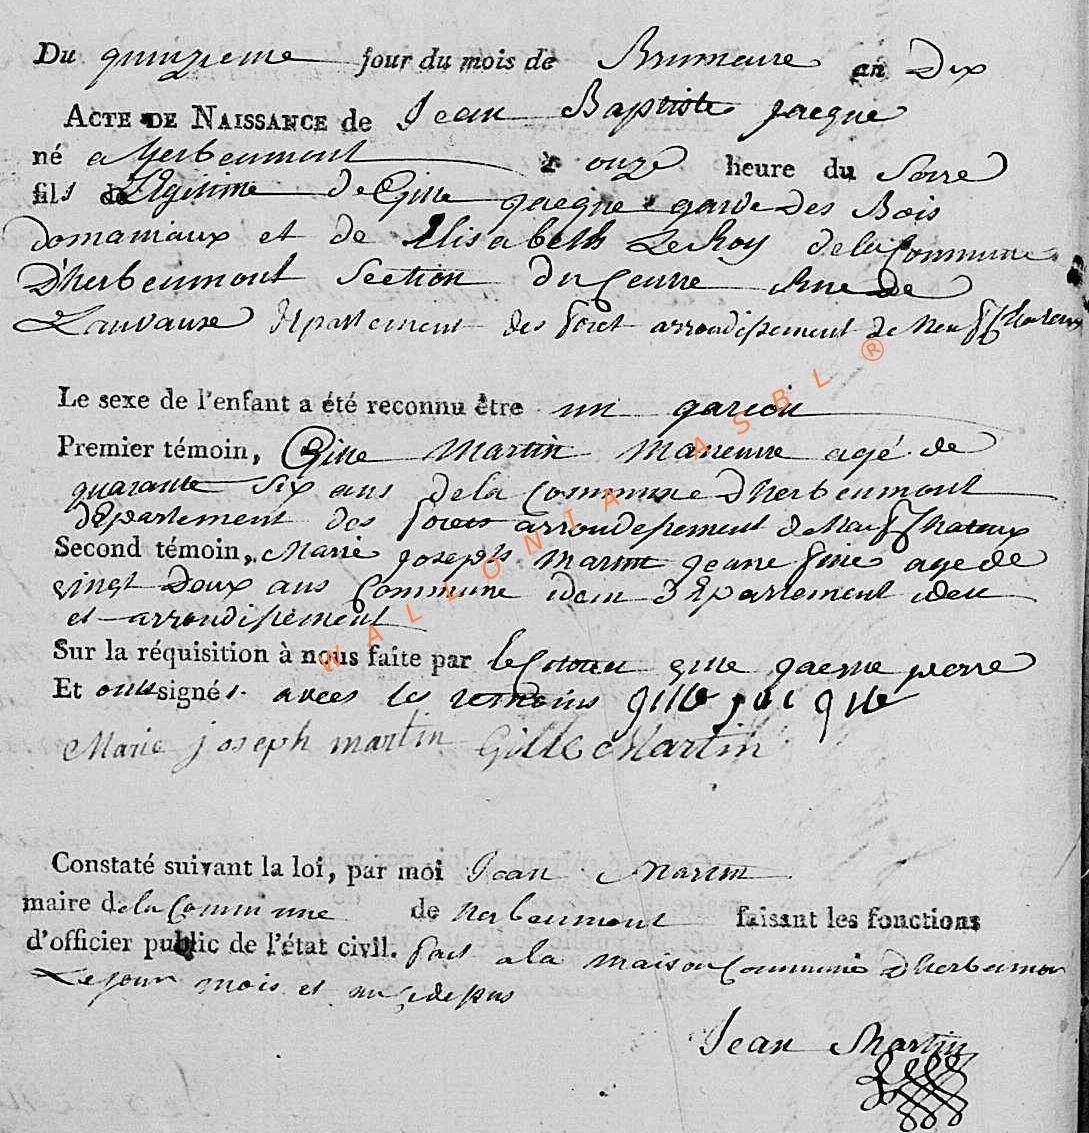 Du quinzieme jour du mois de Brumeaire an Dix
ACTE DE NAISSANCE de Jean Baptiste jacque
né a herbeumont à onze heure du Soire
fils de Legitime de Gille jacque garde des Bois
domaniaux et de Elisabeth LeRoy de la Commune
D'herbeumont Section du Centre Rue de
Lauvaux departement des foret arrondissement de Neufchateau
Le sexe de l'enfant a été reconnu être un garcon
Premier témoin, Gille Martin agé de
quarante Six ans de la Commune d'herbeumont
departement des forets arrondepement de Neufchateaux
Second témoin, Marie joseph Martin jeune fille age de
vingt Deux ans Commune idem Departement idem
et arrondissement
Sur la réquisition à nous faite par le Citoien gille jacque perre
Et ont signés avec les temoins gille jacque
Marie joseph martin Gille Martin
Constaté suivant la loi, par moi Jean Martin
maire de la Commune de herbeumont faisant les fonctions
d'officier public de l'état civil. fait a la maison Commune d'herbeumon
Le jour mois et an
Jean Martin
WALLONIA ASBL ®